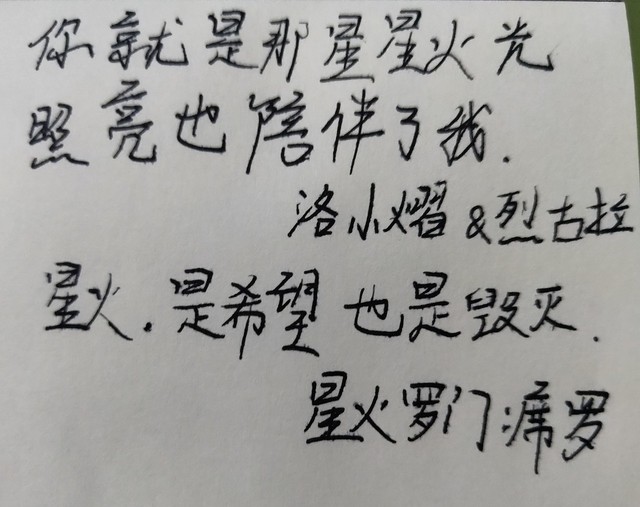 你就是那星星火光
照亮也陪伴了我.
洛小熠&烈古拉
星火.是希望也是毁灭.
星火罗门:席罗